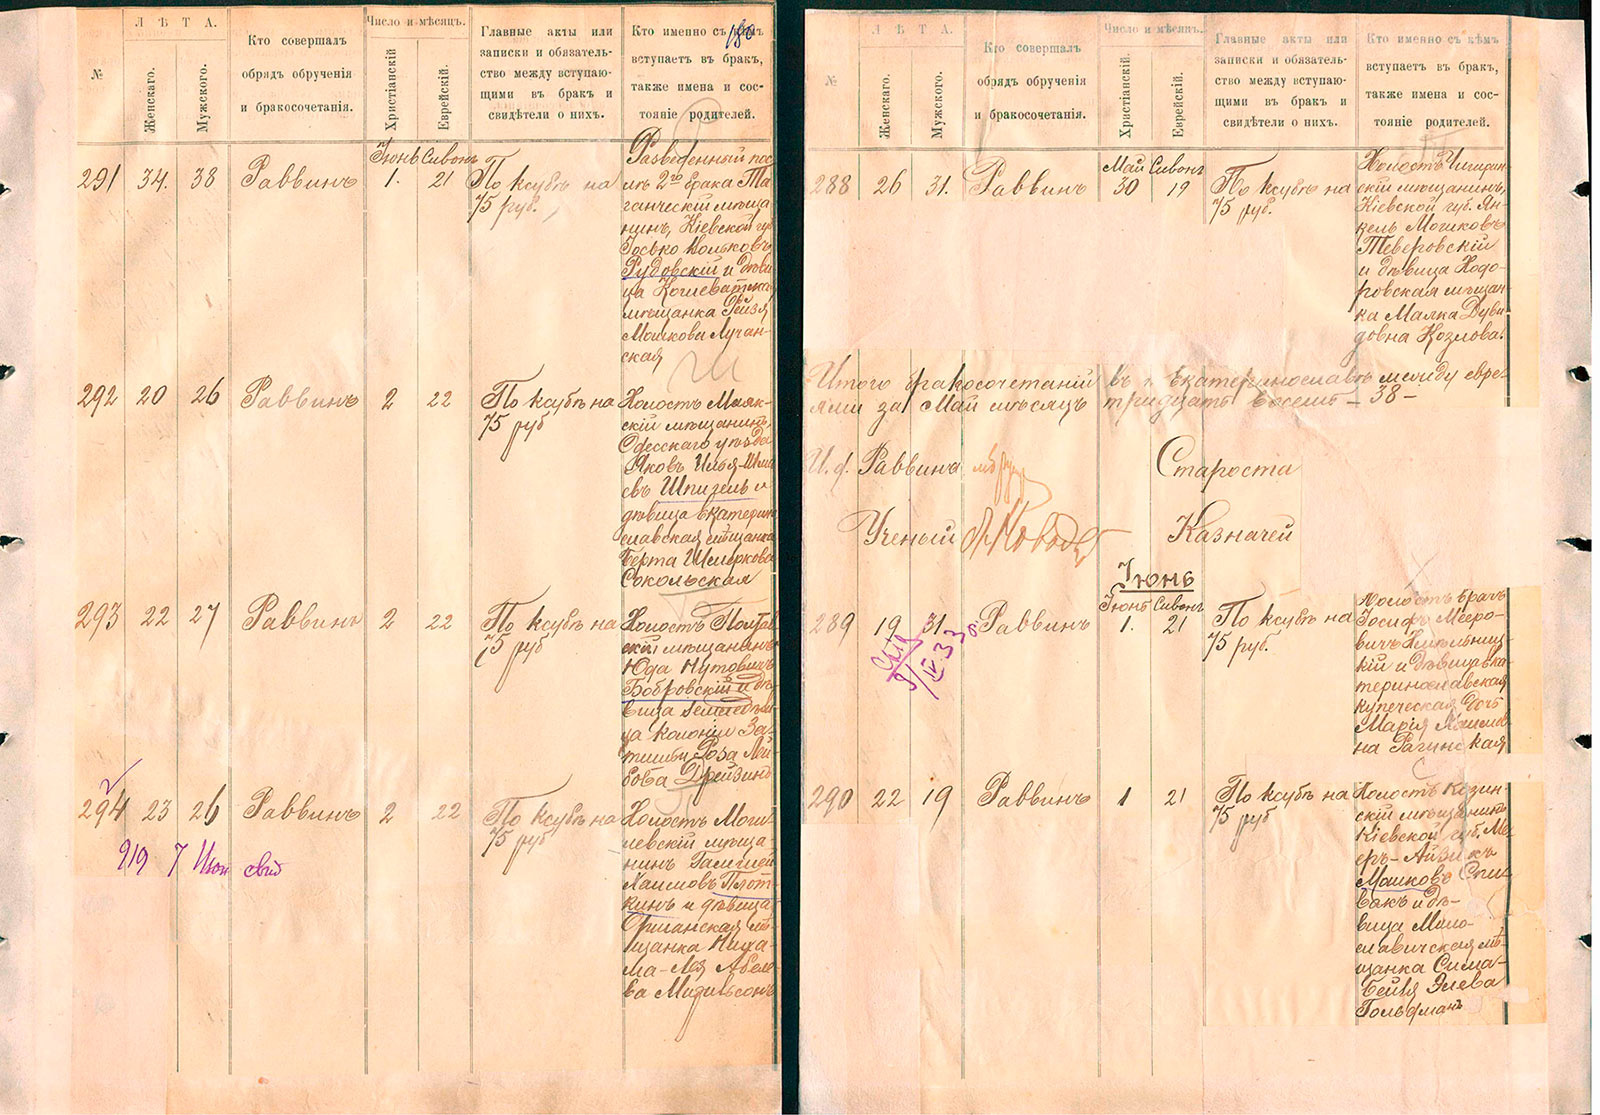 180
№
Л Ѣ Т А.
Женскаго.
Мужского.
Кто совершалъ
обрядъ обрученія
и бракосочетанія.
Число и мѣсяцъ.
Христіанскій
Еврейскій.
Главные акты или
записки и обязатель-
ство между вступаю-
щими въ бракъ и
свидѣтели о нихъ.
Кто именно съ кѣмъ
вступаетъ въ бракъ,
также имена и сос-
тояніе родителей.
291 34. 38 Раввинъ
Іюнь Сивонъ
1. 21
По ксубѣ на
75 руб.
Разведенный пос-
лѣ 2го брака Та-
ганческій мѣща-
нинъ, Кіевской губ.
Іосько Вольковъ
Рудовскій и дѣви-
ца Кошеватская
мѣщанка Рейзя
Мошкова Лучан-
ская
292 20 26 Раввинъ 2 22
По ксубѣ на
75 руб
Холостъ Маяк-
скій мѣщанинъ,
Одесскаго уѣзда
Яковъ Илья-Шма
евъ Шпизель и
дѣвица Екатерино
славская мѣщанка
Берта Шмеркова
Сокольская
293 22 27 Раввинъ 2 22
По ксубѣ на
75 руб
Холостъ Полтав
скій мѣщанинъ
Юда Нутовичъ
Бобровскій и дѣ-
вица земледѣли
ца колоніи За-
тишья Роза Лей-
бова Дрейзинъ
294 23 26 Раввинъ 2 22
По ксубѣ на
75 руб
Холостъ Моги-
левскій мѣща-
нинъ Гамшей
Хаимовъ Плот-
кинъ и дѣвица
Оршанская мѣ-
щанка Ниха-
ма-Лея Абеле-
ва Мизильсонъ
919 7 Июн свид
№
Л Ѣ Т А.
Женскаго.
Мужского.
Кто совершалъ
обрядъ обрученія
и бракосочетанія.
Число и мѣсяцъ.
Христіанскій.
Еврейскій.
Главные акты или
записки и обязатель-
ство между вступаю-
щими въ бракъ и
свидѣтели о нихъ.
Кто именно съ кѣмъ
вступаетъ въ бракъ,
также имена и сос-
тояніе родителей.
288 26 31. Раввинъ
Май Сивонъ
30 19
По ксубѣ на
75 руб.
Холостъ Чигирин-
скій мѣщанинъ,
Кіевской губ. Ян-
кель Мошковъ
Теверовскій
и дѣвица Ходо-
ровская мѣщан-
ка Малка Дуви-
довна Козлова.
Итого бракосочетаній въ г. Екатеринославѣ между евре-
ями за Май мѣсяцъ тридцать восемь – 38 –
И. д. Раввинъ
Староста
Ученый
Казначей
Іюнь
289 19 31. Раввинъ
Іюнь Сивонъ
1. 21
По ксубѣ на
75 руб.
Холостъ врачъ
Іосифъ Мееро-
вичъ Хмельниц-
кій и дѣвица Ека-
теринославская
купеческая дочь
Марія Хаимов-
на Рагинская
290 22 19 Раввинъ 1 21
По ксубѣ на
75 руб
Холостъ Козин-
скій мѣщанинъ
Кіевской губ. Ме-
еръ-Айзикъ
Мошковъ Спи-
вакъ и дѣ-
вица Мило-
славичская мѣ-
щанка Сима-
Бейля Элева
Гольдманъ